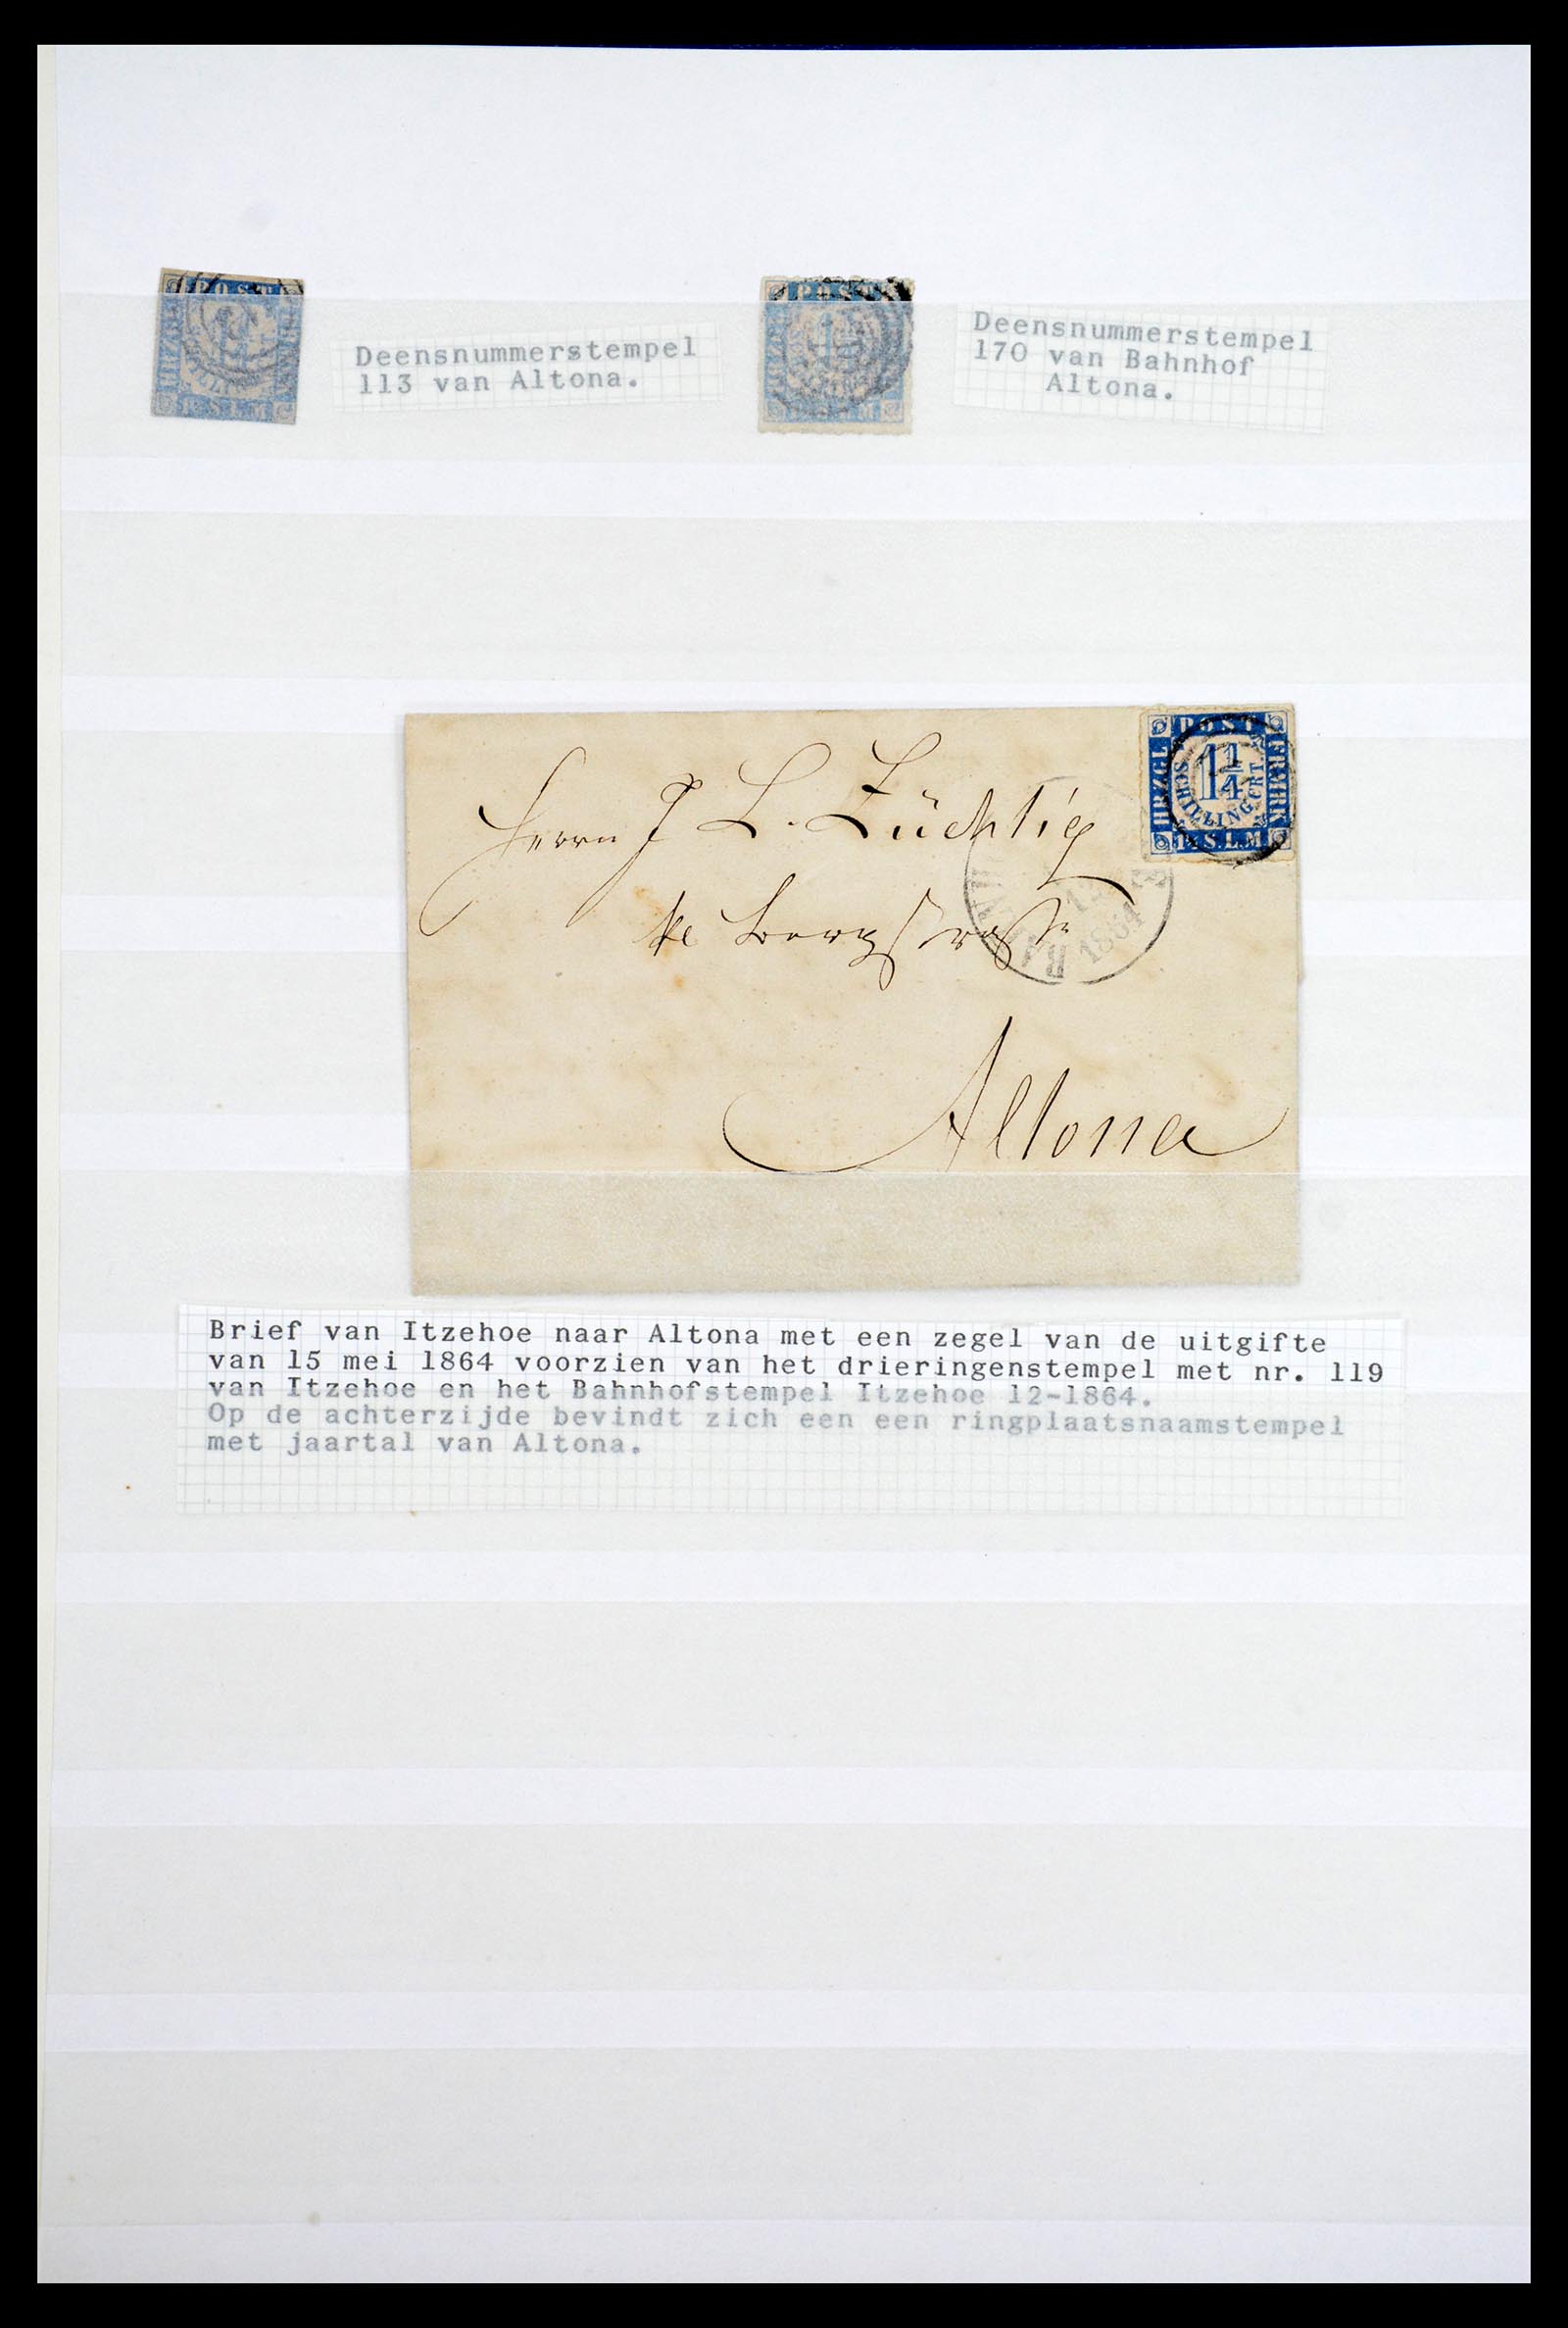 POST
1 S.L.M
Deensnummerstempel
113 van Altona.
POST
Deensnummerstempel
170 van Bahnhof
Altona.
POST
HRZGL
FRMRK
1¼
SCHILLING CRT.
1 S.L.M
Herrn J L. Züchtig
Bergstrasse
12
1864
Altona
Brief van Itzehoe naar Altona met een zegel van de uitgifte
van 15 mei 1864 voorzien van het drieringenstempel met nr. 119
van Itzehoe en het Bahnhofstempel Itzehoe 12-1864.
Op de achterzijde bevindt zich een een ringplaatsnaamstempel
met jaartal van Altona.